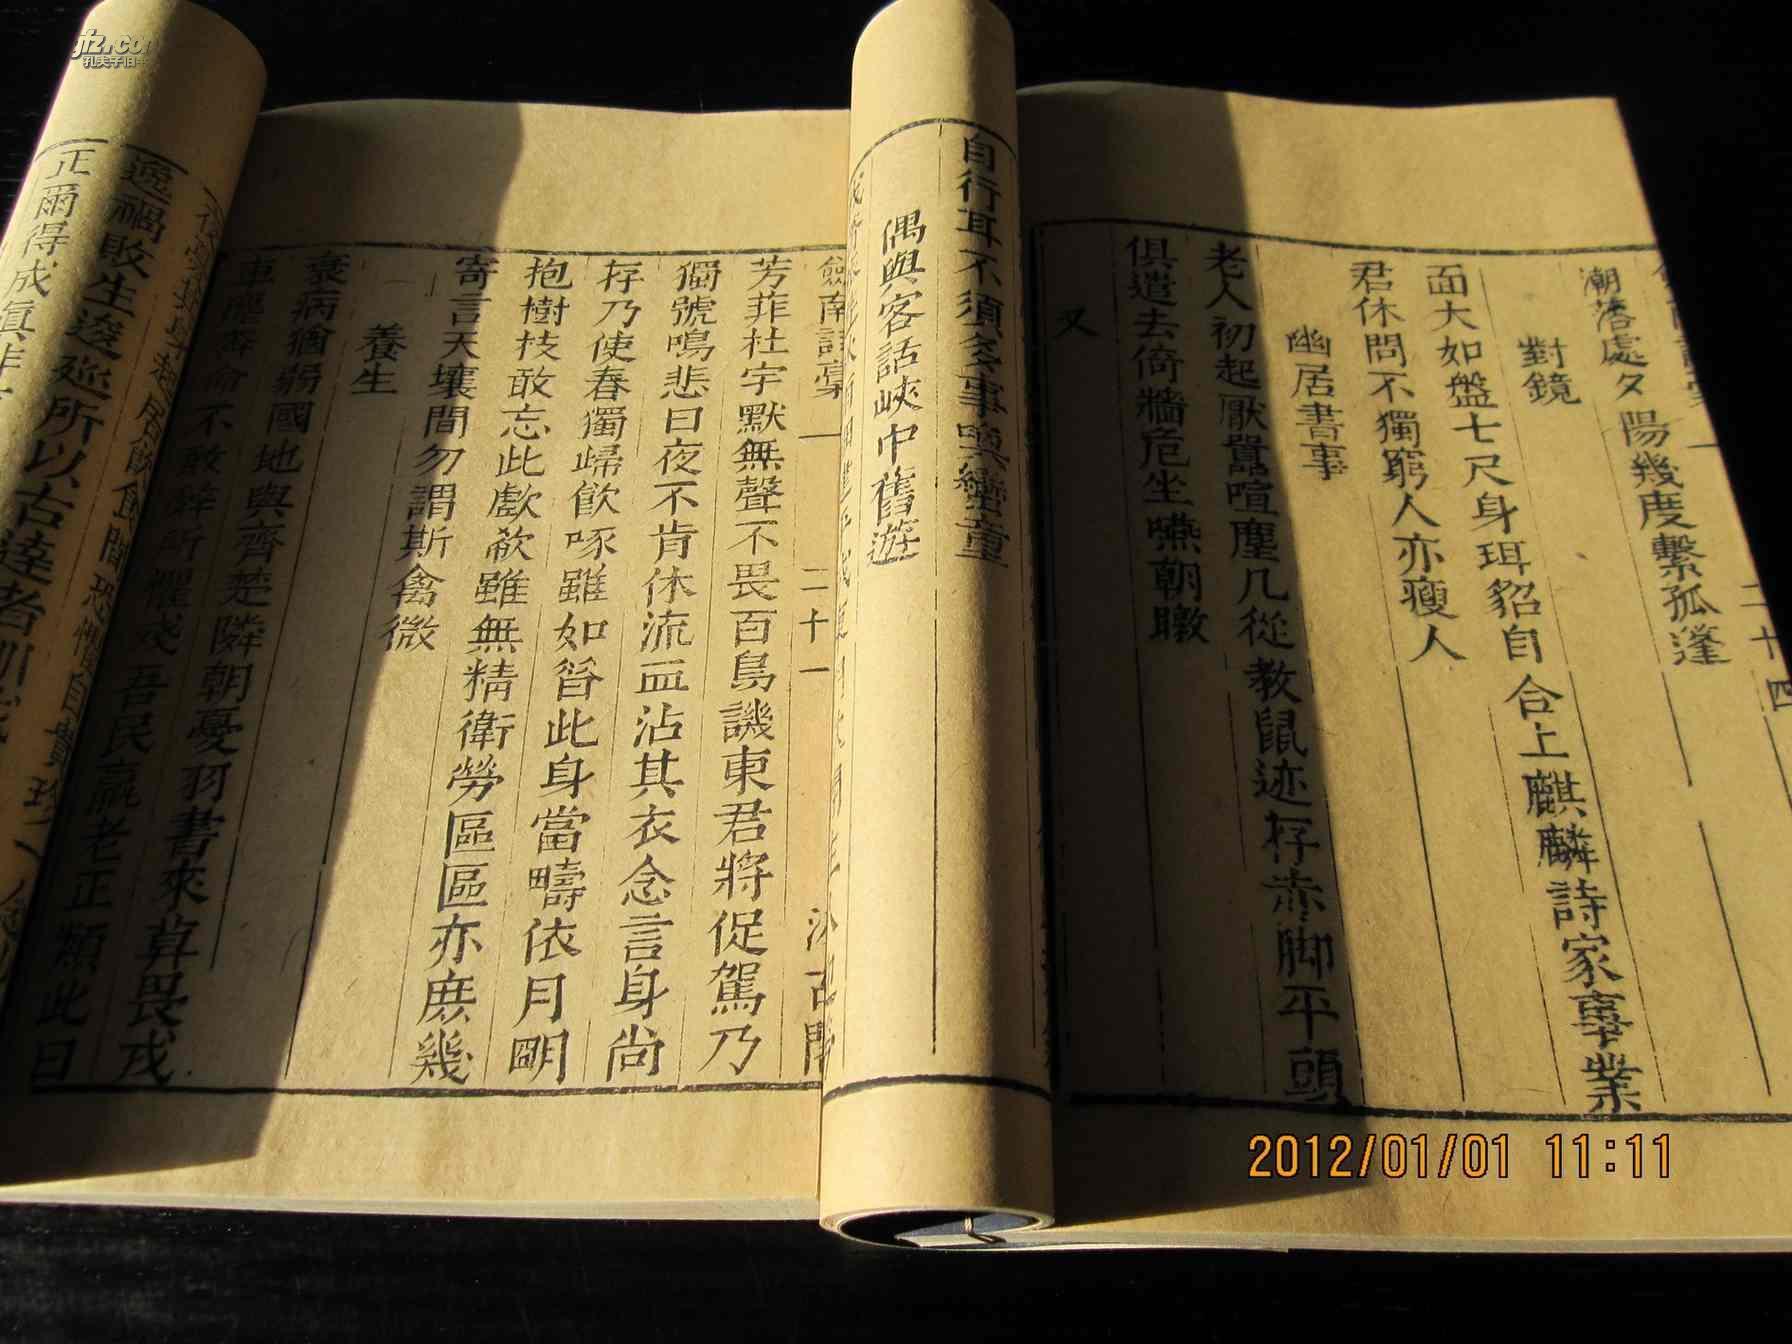 孔夫子旧
潮落處夕陽幾度繫孤蓬
對鏡
面大如盤七尺身珥貂自合上麒麟詩家事業
君休問不獨窮人亦瘦人
幽居書事
老人初起厭囂喧塵几從教鼠迹存赤脚平頭
俱遣去倚牆危坐嚥朝暾
又
二十四
自行耳不須多事喚蠻童
偶與客話峽中舊遊
劒南詩稾 二十一
芳菲杜宇默無聲不畏百鳥譏東君將促駕乃
獨號鳴悲日夜不肯休流血沾其衣念言身尚
存乃使春獨歸飲啄雖如昝此身當疇依月明
抱樹枝敢忘此歔欷雖無精衛勞區區亦庶幾
寄言天壤間勿謂斯禽微
養生
衰病猶弱國地與齊楚隣朝憂羽書來莫畏戎
車塵奔命不敢辭所懼殘吾民羸老正類此日
遄禍敗生逡巡所以古達者
正爾得成眞
2012/01/01 11:11